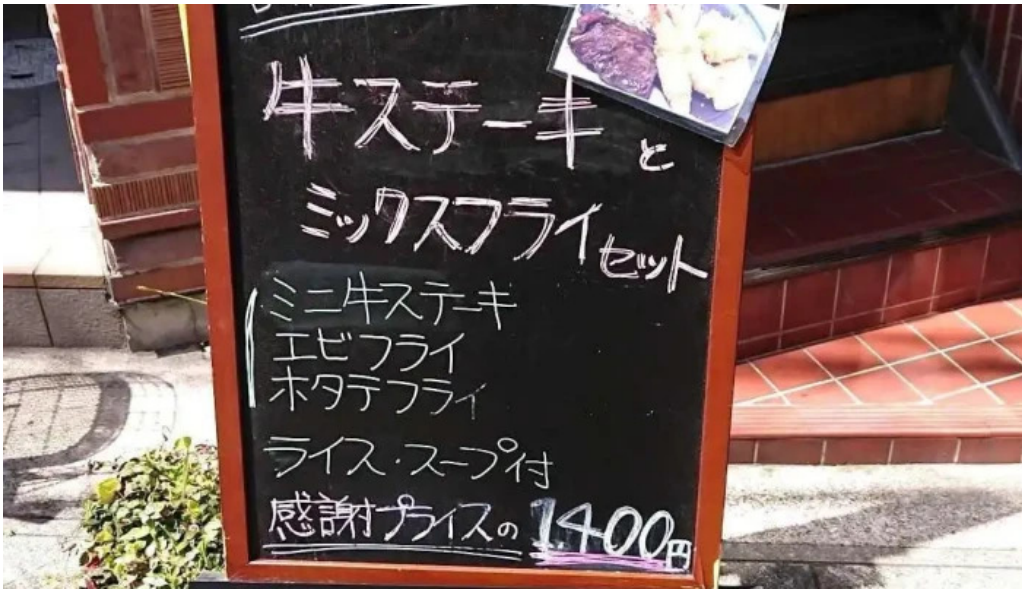 牛ステーキと
ミックスフライセット
ミニ牛ステーキ
エビフライ
ホタテフライ
ライス・スープ付
感謝プライスの1.400円